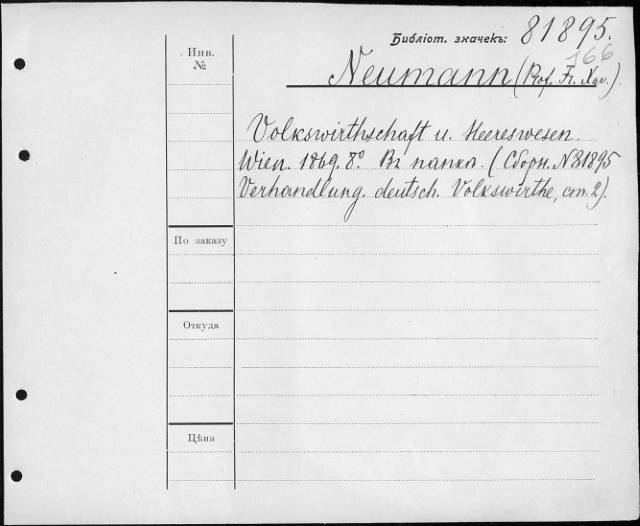 Библіот. значекъ: 81895.
166
Инв.
№
Neumann (Prof. Fr. Xav.).
Volkswirthschaft u. Heereswesen.
Wien. 1869. 8º. Въ папкѣ. (Сборн. № 81895
Verhandlung. deutsch. Volkswirthe, ст. 2).
По заказу
Откуда
Цѣна